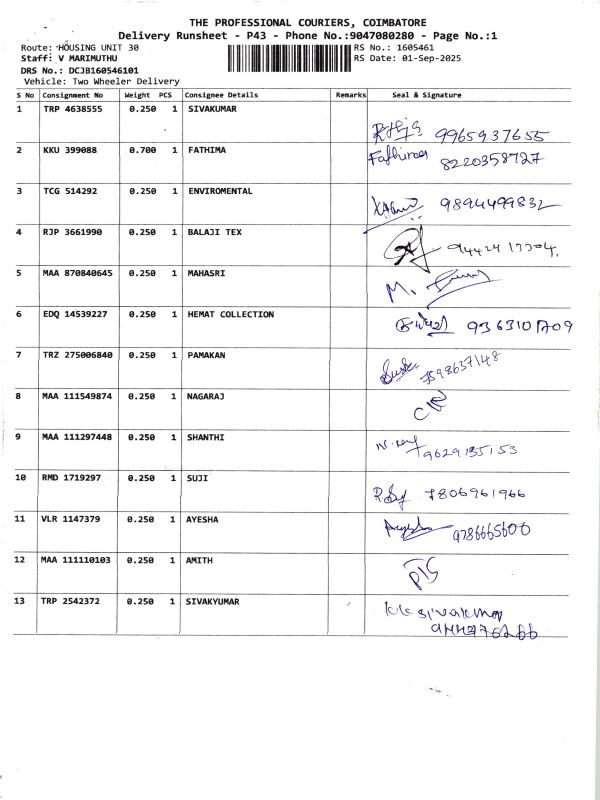 THE PROFESSIONAL COURIERS, COIMBATORE
Delivery Runsheet - P43 - Phone No.:9047080280 - Page No.:1
Route: HOUSING UNIT 30
RS No.: 1605461
Staff: V MARIMUTHU
RS Date: 01-Sep-2025
DRS No.: DCJB160546101
Vehicle: Two Wheeler Delivery
S No Consignment No Weight PCS Consignee Details Remarks Seal & Signature
1 TRP 4638555 0.250 1 SIVAKUMAR
9965937655
2 KKU 399088 0.700 1 FATHIMA Fathima
8220358727
3 TCG 514292 0.250 1 ENVIROMENTAL
9894499832
4 RJP 3661990 0.250 1 BALAJI TEX
5 MAA 870840645 0.250 1 MAHASRI
M.
6 EDQ 14539227 0.250 1 HEMAT COLLECTION
9363101709
7 TRZ 275006840 0.250 1 PAMAKAN
7598637148
8 MAA 111549874 0.250 1 NAGARAJ
9 MAA 111297448 0.250 1 SHANTHI
9629135153
10 RMD 1719297 0.250 1 SUJI
7806961966
11 VLR 1147379 0.250 1 AYESHA
Ayesha 9786665600
12 MAA 111110103 0.250 1 AMITH
13 TRP 2542372 0.250 1 SIVAKYUMAR